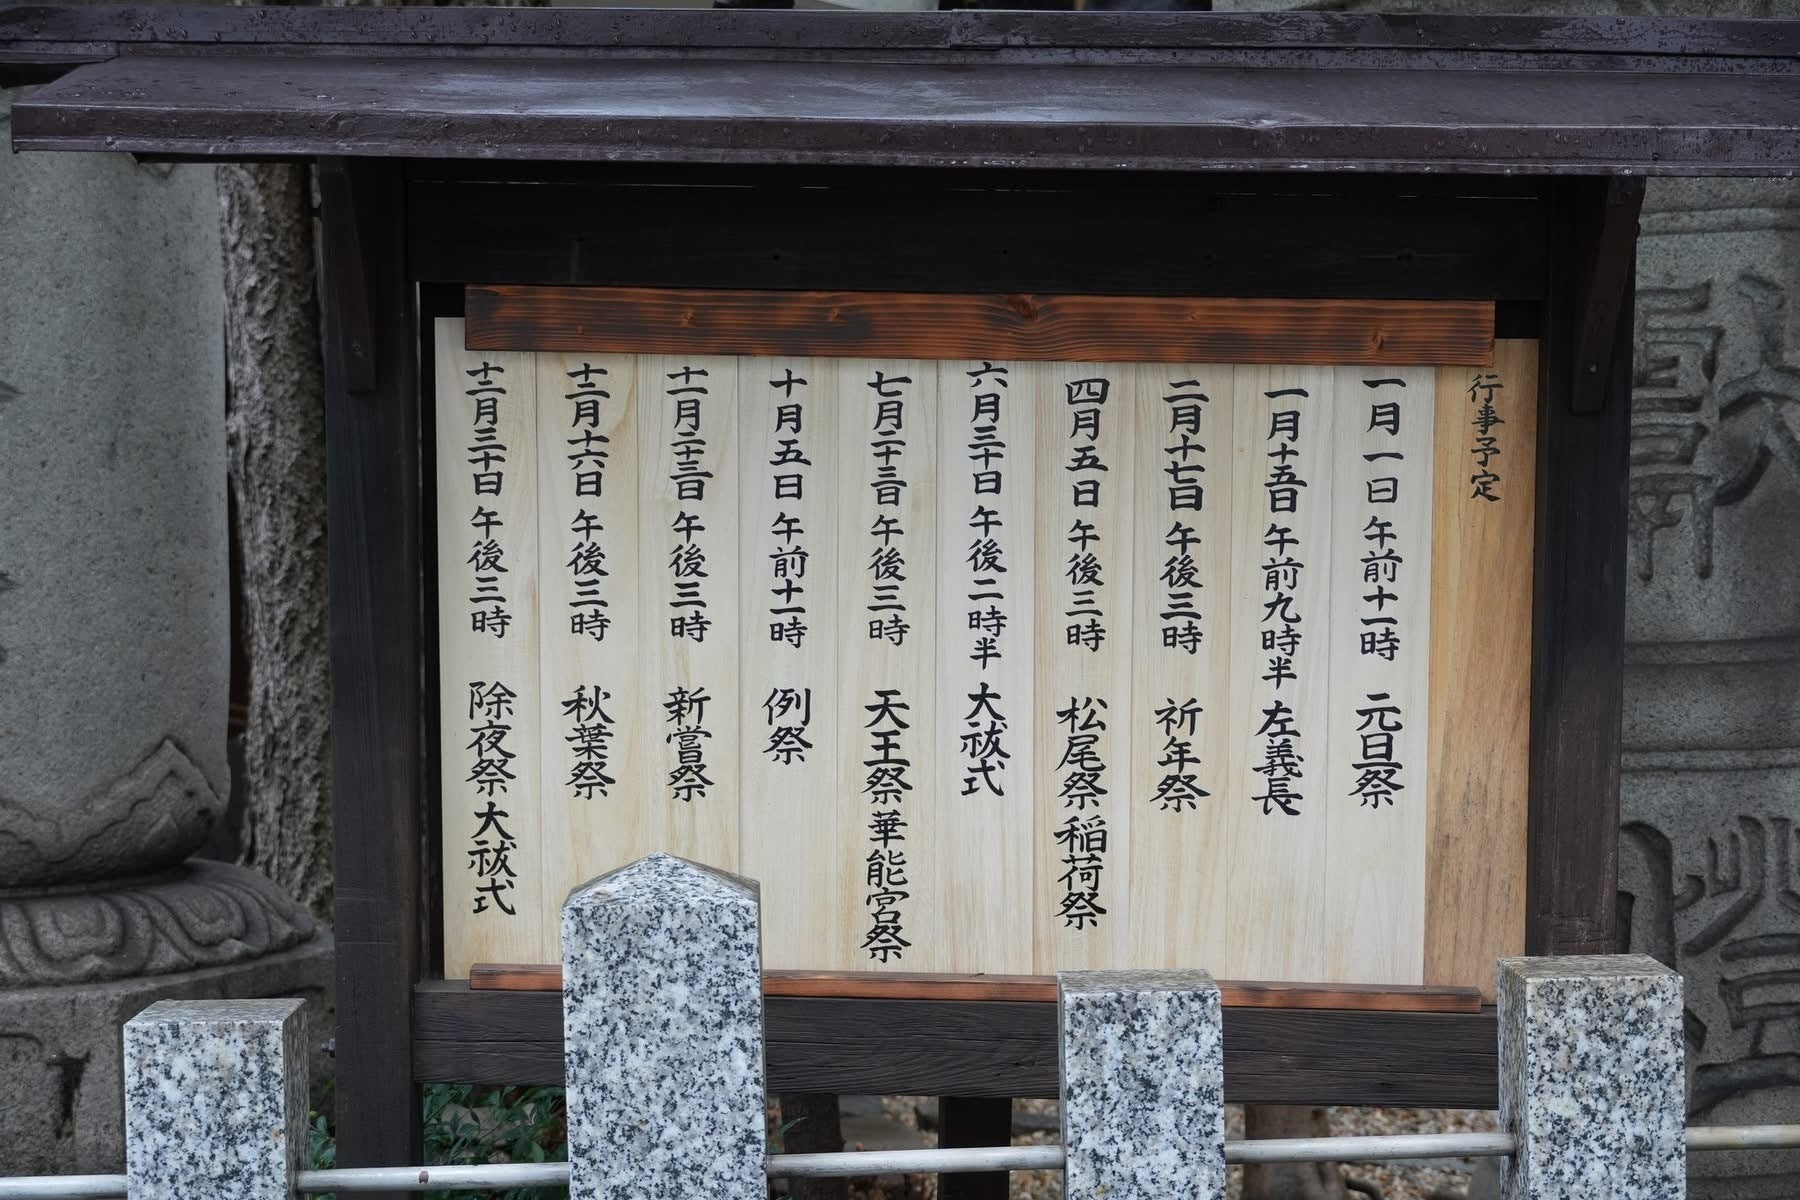 行事予定
一月一日 午前十一時 元旦祭
一月十五日 午前九時半 左義長
二月十七日 午後三時 祈年祭
四月五日 午後三時 松尾祭 稲荷祭
六月三十日 午後二時半 大祓式
七月二十三日 午後三時 天王祭 華能宮祭
十月五日 午前十一時 例祭
十一月二十三日 午後三時 新嘗祭
十二月十六日 午後三時 秋葉祭
十二月三十日 午後三時 除夜祭 大祓式